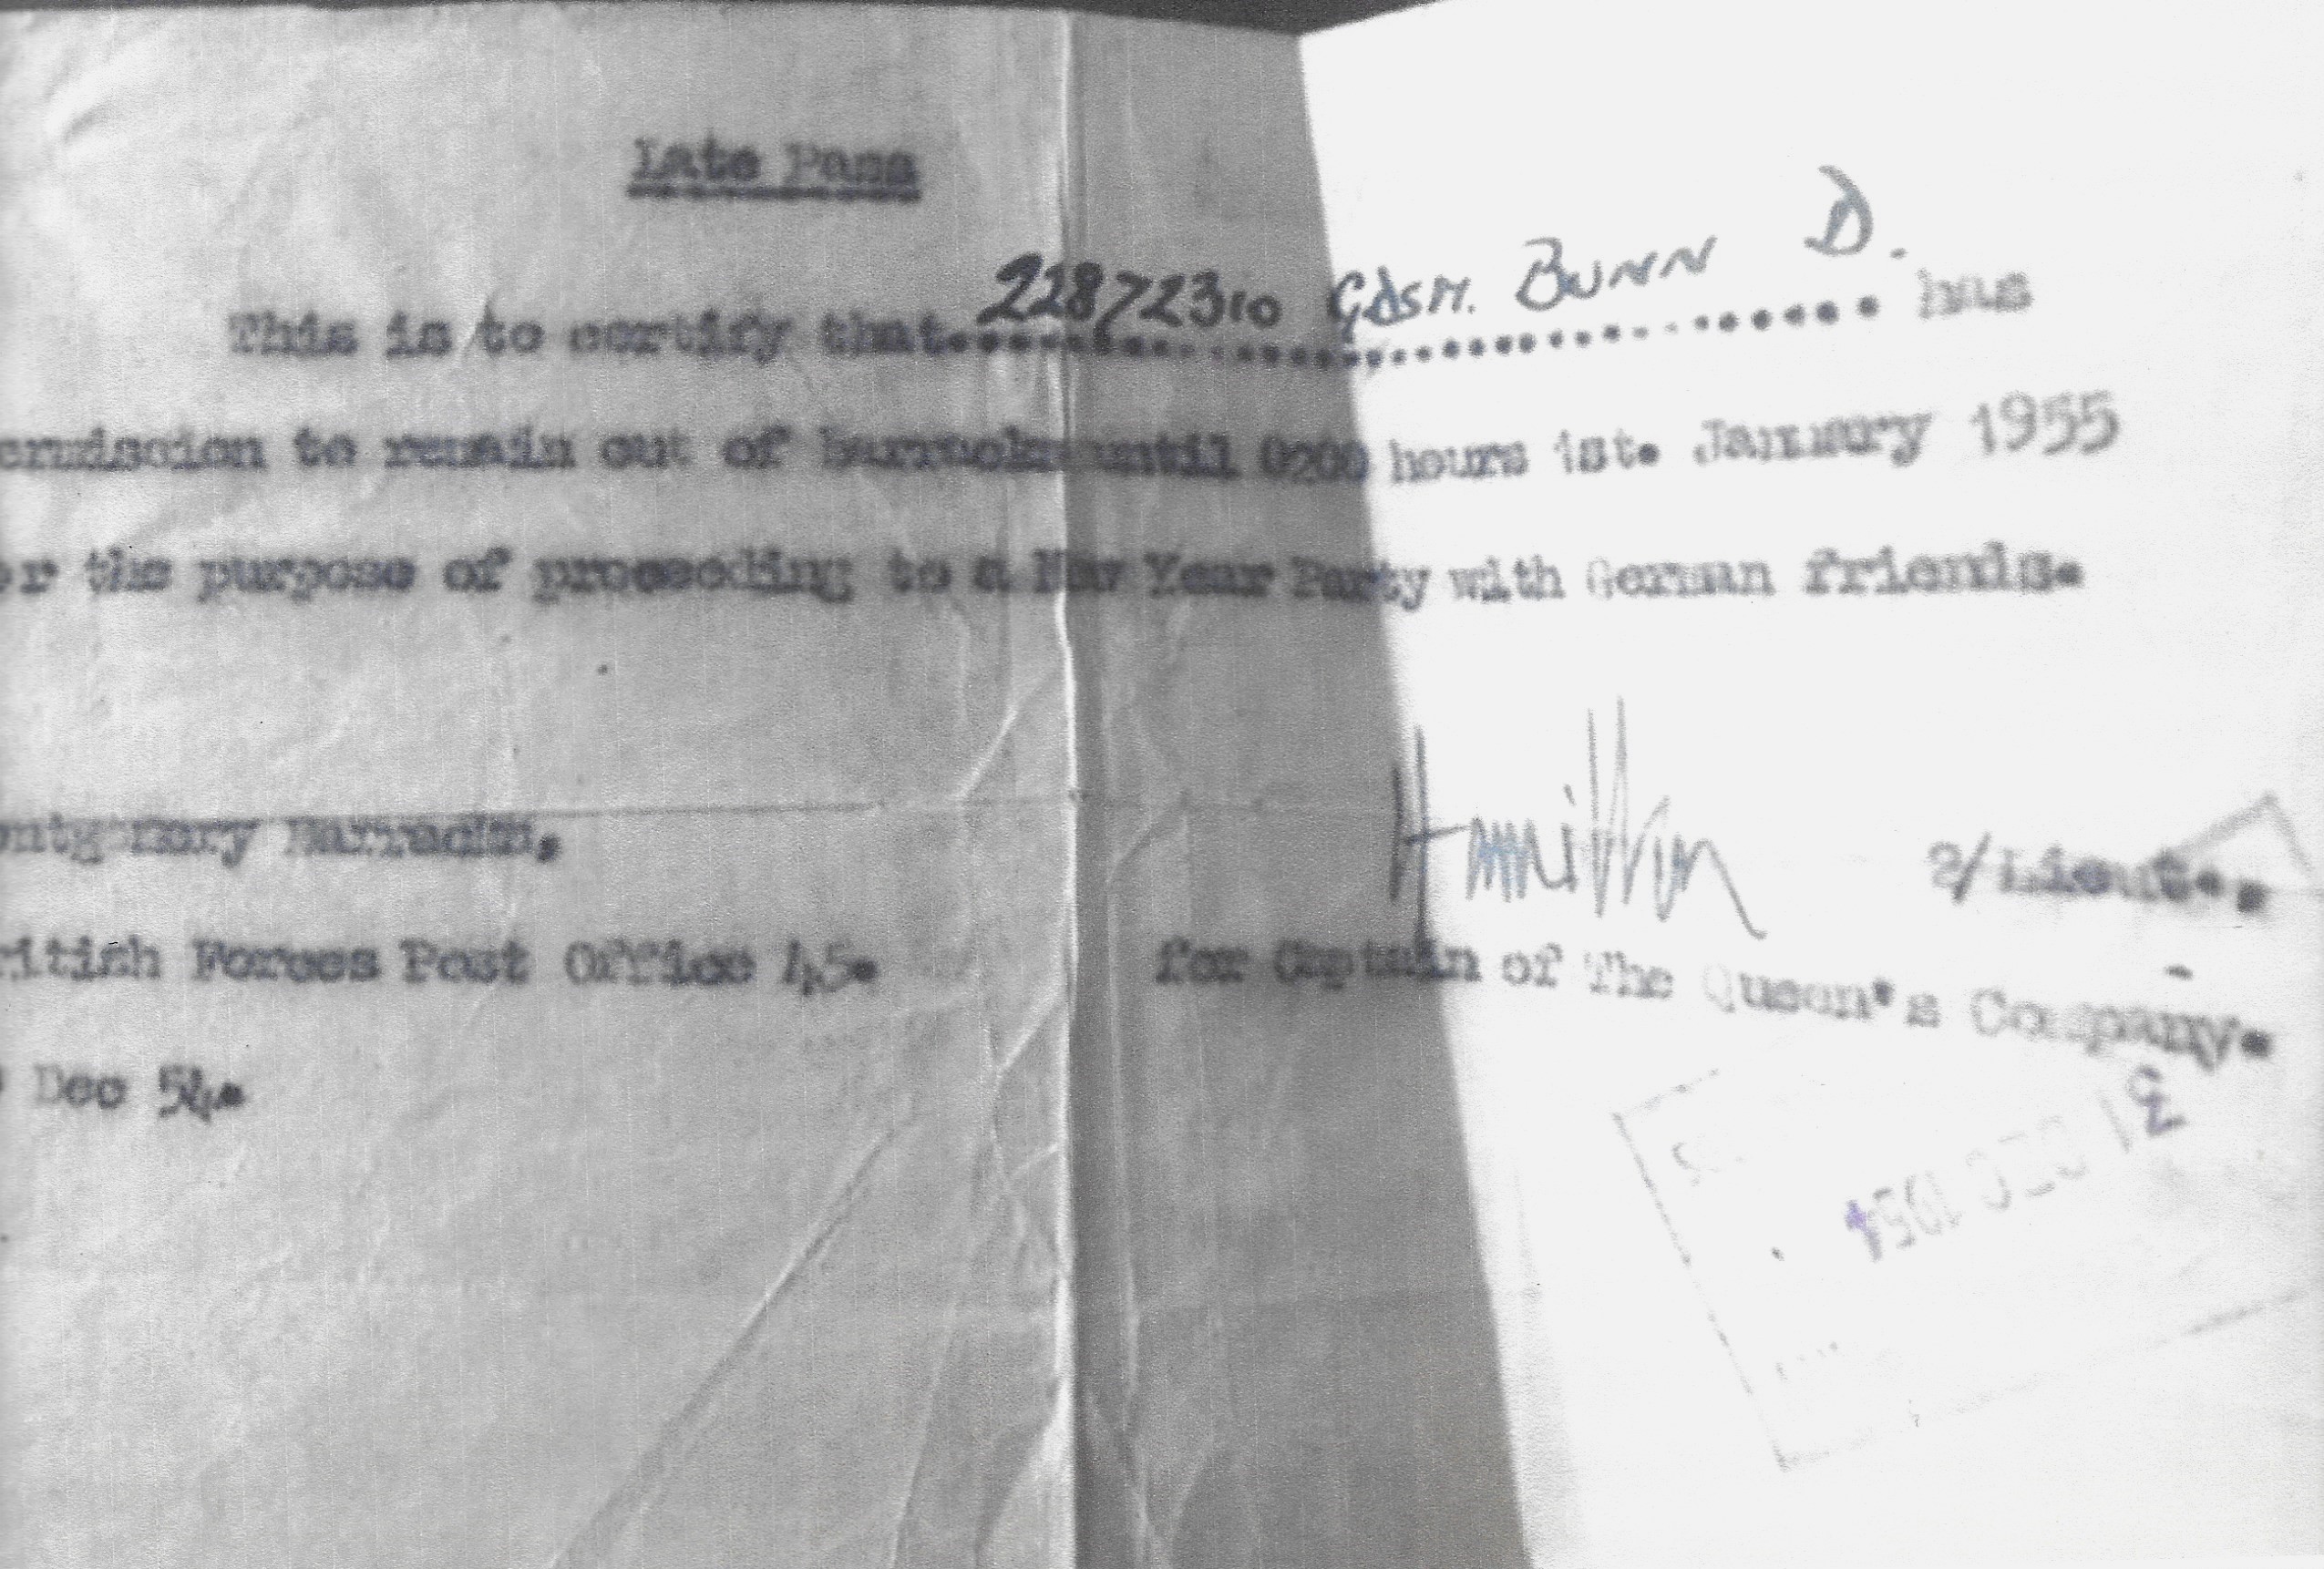 Late Pass
This is to certify that 22872310 GDSM. BUNN D. has
ermission to remain out of barracks until 0200 hours 1st. January 1955
or the purpose of proceeding to a New Year Party with German friends.
ontgomery Barracks,
Hamilton 2/Lieut.,
ritish Forces Post Office 45. for Captain of The Queen's Company.
Dec 54.
31 DEC 1954